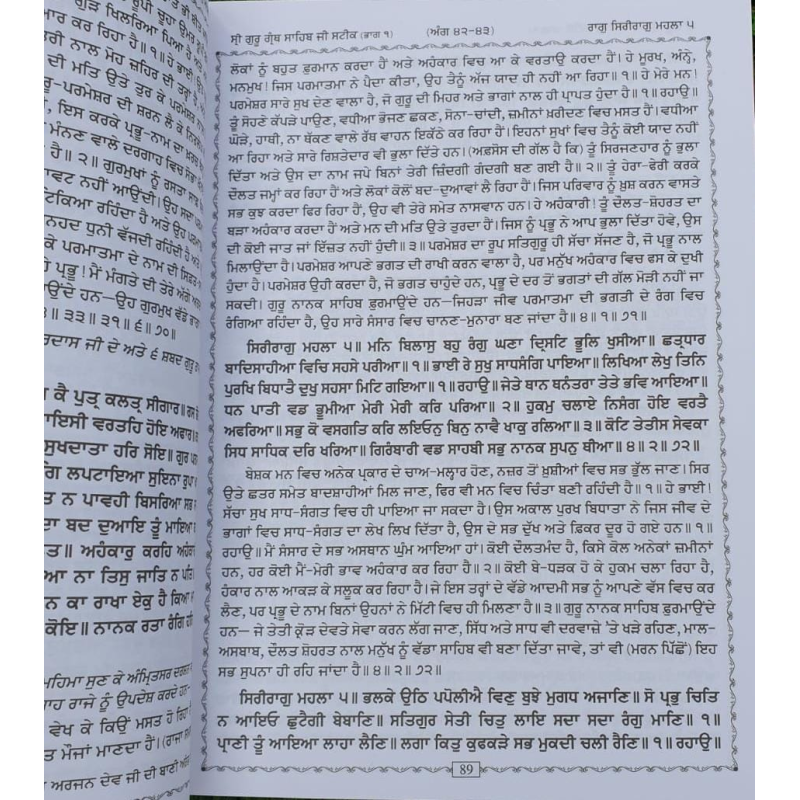 ਗੁੜ ਖਿਲਰਿਆ ਪਿਆ ਹੈ
ਕਾਰ ਕਰ ਰਿਹਾ ਹੈ॥੧॥ ਹੇ ਭਾਈ!
ਰੀ ਨਾਲ ਮੋਹ ਜ਼ਹਿਰ ਦੀ ਤਰ੍ਹਾਂ ਹੈ
ਦੀ ਮਤਿ ਉਤੇ ਤੁਰ ਕੇ ਪਰਮਾਤਮਾ
ਰੂ-ਪਰਮੇਸ਼ਰ ਦੀ ਸ਼ਰਨ ਲੈ ਕੇ
ਇਸ ਕਰਕੇ ਪ੍ਰਭੂ-ਨਾਮ ਦਾ
ਮੰਨਣ ਵਾਲੇ ਦਰਗਾਹ ਵਿਚ
ਹੈ॥੨॥ ਗੁਰਮੁਖਾਂ ਨੂੰ ਰਸਤਾ ਸਾਫ਼
ਵਟ ਨਹੀਂ ਆਉਂਦੀ। ਉਹ ਸਦਾ
ਟਿਕਿਆ ਰਹਿੰਦਾ ਹੈ ਅਤੇ ਉਹ
ਨਹਦ ਧੁਨੀ ਵੱਜਦੀ ਰਹਿੰਦੀ ਹੈ
ਕੇ ਪਰਮਾਤਮਾ ਦੇ ਨਾਮ ਦੀ ਸਿਫ਼ਤ-
ਪ੍ਰਭੂ! ਮੈਂ ਮੰਗਤੇ ਦੀ ਤੇਰੇ ਅੱਗੇ
ਉਂਦੇ ਹਨ—ਉਹ ਗੁਰਮੁਖ ਵੱਡੇ
੪॥੩੩॥੩੧॥੬॥੭੦॥
ਰਦਾਸ ਜੀ ਦੇ ਅਤੇ ੬ ਸ਼ਬਦ ਗੁਰੂ
ਕੈ ਪੁਤ੍ਰ ਕਲਤ੍ਰ ਸੀਗਾਰ॥
ਇਸੀ ਵਰਤਹਿ ਹੋਇ ਅਫਾਰ॥
ਸੁਖਦਾਤਾ ਹਰਿ ਸੋਇ॥ ਗੁਰ
ਲਪਟਾਇਆ ਸੁਇਨਾ ਰੁਪਾ
ਤ ਨ ਪਾਵਹੀ ਬਿਸਰਿਆ
ਦਾ ਬਦ ਦੁਆਇ ਤੂੰ ਮਾਇਆ
ਤ॥ ਅਹੰਕਾਰੁ ਕਰਹਿ
ਆ ਨਾ ਤਿਸੁ ਜਾਤਿ ਨ ਪਤਿ॥
ਨ ਕਾ ਰਾਖਾ ਏਕੁ ਹੈ ਕਿਆ
ਕੋਇ॥ ਨਾਨਕ ਰਤਾ ਰੰਗਿ
ਮਹਿਮਾ ਸੁਣ ਕੇ ਅੰਮ੍ਰਿਤਸਰ
ਾਹ ਰਾਜੇ ਨੂੰ ਉਪਦੇਸ਼ ਕਰਦੇ ਹਨ-
ਵੇਖ ਕੇ ਕਿਉਂ ਮਸਤ ਹੋ ਰਿਹਾ
ਮੌਜਾਂ ਮਾਣਦਾ ਹੈਂ। (ਰਾਜਾ
ਅਰਜਨ ਦੇਵ ਜੀ ਦੀ ਬਾਣੀ
ਸ੍ਰੀ ਗੁਰੂ ਗ੍ਰੰਥ ਸਾਹਿਬ ਜੀ ਸਟੀਕ (ਭਾਗ ੧) (ਅੰਗ ੪੨-੪੩) ਰਾਗੁ ਸਿਰੀਰਾਗੁ ਮਹਲਾ ੫
ਲੋਕਾਂ ਨੂੰ ਬਹੁਤ ਫ਼ੁਰਮਾਨ ਕਰਦਾ ਹੈਂ ਅਤੇ ਅਹੰਕਾਰ ਵਿਚ ਆ ਕੇ ਵਰਤਾਉ ਕਰਦਾ ਹੈਂ। ਹੇ ਮੂਰਖ, ਅੰਨ੍ਹੇ,
ਮਨਮੁਖ! ਜਿਸ ਪਰਮਾਤਮਾ ਨੇ ਪੈਦਾ ਕੀਤਾ, ਉਹ ਤੈਨੂੰ ਅੱਜ ਯਾਦ ਹੀ ਨਹੀਂ ਆ ਰਿਹਾ॥੧॥ ਹੇ ਮੇਰੇ ਮਨ!
ਪਰਮੇਸ਼ਰ ਸਾਰੇ ਸੁਖ ਦੇਣ ਵਾਲਾ ਹੈ, ਜੋ ਗੁਰੂ ਦੀ ਮਿਹਰ ਅਤੇ ਭਾਗਾਂ ਨਾਲ ਹੀ ਪ੍ਰਾਪਤ ਹੁੰਦਾ ਹੈ॥੧॥ਰਹਾਉ॥
ਤੂੰ ਸੋਹਣੇ ਕੱਪੜੇ ਪਾਉਣ, ਵਧੀਆ ਭੋਜਣ ਛਕਣ, ਸੋਨਾ-ਚਾਂਦੀ, ਜ਼ਮੀਨਾਂ ਖ਼ਰੀਦਣ ਵਿਚ ਮਸਤ ਹੈਂ। ਵਧੀਆ
ਘੋੜੇ, ਹਾਥੀ, ਨਾ ਥੱਕਣ ਵਾਲੇ ਰੱਥ ਵਾਹਨ ਇਕੱਠੇ ਕਰ ਰਿਹਾ ਹੈਂ। ਇਹਨਾਂ ਸੁਖਾਂ ਵਿਚ ਤੈਨੂੰ ਕੋਈ ਯਾਦ ਨਹੀਂ
ਆ ਰਿਹਾ ਅਤੇ ਸਾਰੇ ਰਿਸ਼ਤੇਦਾਰ ਵੀ ਭੁਲਾ ਦਿੱਤੇ ਹਨ। (ਅਫ਼ਸੋਸ ਦੀ ਗੱਲ ਹੈ ਕਿ) ਤੂੰ ਸਿਰਜਣਹਾਰ ਨੂੰ ਭੁਲਾ
ਦਿੱਤਾ ਅਤੇ ਉਸ ਦਾ ਨਾਮ ਜਪੇ ਬਿਨਾਂ ਤੇਰੀ ਜ਼ਿੰਦਗੀ ਗੰਦਗੀ ਬਣ ਗਈ ਹੈ॥੨॥ ਤੂੰ ਹੇਰਾ-ਫੇਰੀ ਕਰਕੇ
ਦੌਲਤ ਜਮ੍ਹਾਂ ਕਰ ਰਿਹਾ ਹੈਂ ਅਤੇ ਲੋਕਾਂ ਕੋਲੋਂ ਬਦ-ਦੁਆਵਾਂ ਲੈ ਰਿਹਾ ਹੈਂ। ਜਿਸ ਪਰਿਵਾਰ ਨੂੰ ਖ਼ੁਸ਼ ਕਰਨ ਵਾਸਤੇ
ਸਭ ਕੁਝ ਕਰਦਾ ਫਿਰ ਰਿਹਾ ਹੈਂ, ਉਹ ਵੀ ਤੇਰੇ ਸਮੇਤ ਨਾਸਵਾਨ ਹਨ। ਹੇ ਅਹੰਕਾਰੀ! ਤੂੰ ਦੌਲਤ-ਸ਼ੋਹਰਤ ਦਾ
ਬੜਾ ਅਹੰਕਾਰ ਕਰਦਾ ਹੈਂ ਅਤੇ ਮਨ ਦੀ ਮਤਿ ਉਤੇ ਤੁਰਦਾ ਹੈਂ। ਜਿਸ ਨੂੰ ਪ੍ਰਭੂ ਨੇ ਆਪ ਭੁਲਾ ਦਿੱਤਾ ਹੋਵੇ, ਉਸ
ਦੀ ਕੋਈ ਜਾਤ ਜਾਂ ਇੱਜ਼ਤ ਨਹੀਂ ਹੁੰਦੀ॥੩॥ ਪਰਮੇਸ਼ਰ ਦਾ ਰੂਪ ਸਤਿਗੁਰੂ ਹੀ ਸੱਚਾ ਸੱਜਣ ਹੈ, ਜੋ ਪ੍ਰਭੂ ਨਾਲ
ਮਿਲਾਉਂਦਾ ਹੈ। ਪਰਮੇਸ਼ਰ ਆਪਣੇ ਭਗਤ ਦੀ ਰਾਖੀ ਕਰਨ ਵਾਲਾ ਹੈ, ਪਰ ਮਨੁੱਖ ਅਹੰਕਾਰ ਵਿਚ ਫਸ ਕੇ ਦੁਖੀ
ਹੁੰਦਾ ਹੈ। ਪਰਮੇਸ਼ਰ ਉਹੀ ਕਰਦਾ ਹੈ, ਜੋ ਭਗਤ ਚਾਹੁੰਦੇ ਹਨ, ਪ੍ਰਭੂ ਦੇ ਦਰ ਤੋਂ ਭਗਤਾਂ ਦੀ ਗੱਲ ਮੋੜੀ ਨਹੀਂ ਜਾ
ਸਕਦੀ। ਗੁਰੂ ਨਾਨਕ ਸਾਹਿਬ ਫ਼ੁਰਮਾਉਂਦੇ ਹਨ—ਜਿਹੜਾ ਜੀਵ ਪਰਮਾਤਮਾ ਦੀ ਭਗਤੀ ਦੇ ਰੰਗ ਵਿਚ
ਰੰਗਿਆ ਰਹਿੰਦਾ ਹੈ, ਉਹ ਸਾਰੇ ਸੰਸਾਰ ਵਿਚ ਚਾਨਣ-ਮੁਨਾਰਾ ਬਣ ਜਾਂਦਾ ਹੈ॥੪॥੧॥੭੧॥
ਸਿਰੀਰਾਗੁ ਮਹਲਾ ੫॥ ਮਨਿ ਬਿਲਾਸੁ ਬਹੁ ਰੰਗੁ ਘਣਾ ਦ੍ਰਿਸਟਿ ਭੂਲਿ ਖੁਸੀਆ॥ ਛਤ੍ਰਧਾਰ
ਬਾਦਿਸਾਹੀਆ ਵਿਚਿ ਸਹਸੇ ਪਰੀਆ॥੧॥ ਭਾਈ ਰੇ ਸੁਖੁ ਸਾਧਸੰਗਿ ਪਾਇਆ॥ ਲਿਖਿਆ ਲੇਖੁ ਤਿਨਿ
ਪੁਰਖਿ ਬਿਧਾਤੈ ਦੁਖੁ ਸਹਸਾ ਮਿਟਿ ਗਇਆ॥੧॥ ਰਹਾਉ॥ ਜੇਤੇ ਥਾਨ ਥਨੰਤਰਾ ਤੇਤੇ ਭਵਿ ਆਇਆ॥
ਧਨ ਪਾਤੀ ਵਡ ਭੂਮੀਆ ਮੇਰੀ ਮੇਰੀ ਕਰਿ ਪਰਿਆ॥੨॥ ਹੁਕਮੁ ਚਲਾਏ ਨਿਸੰਗ ਹੋਇ ਵਰਤੈ
ਅਫਰਿਆ॥ ਸਭੁ ਕੋ ਵਸਗਤਿ ਕਰਿ ਲਇਓਨੁ ਬਿਨੁ ਨਾਵੈ ਖਾਕੁ ਰਲਿਆ॥੩॥ ਕੋਟਿ ਤੇਤੀਸ ਸੇਵਕਾ
ਸਿਧ ਸਾਧਿਕ ਦਰਿ ਖਰਿਆ॥ ਗਿਰੰਬਾਰੀ ਵਡ ਸਾਹਬੀ ਸਭੁ ਨਾਨਕ ਸੁਪਨੁ ਥੀਆ॥੪॥੨॥੭੨॥
ਬੇਸ਼ਕ ਮਨ ਵਿਚ ਅਨੇਕ ਪ੍ਰਕਾਰ ਦੇ ਚਾਅ-ਮਲ੍ਹਾਰ ਹੋਣ, ਨਜ਼ਰ ਤੋਂ ਖ਼ੁਸ਼ੀਆਂ ਵਿਚ ਸਭ ਭੁੱਲ ਜਾਣ। ਸਿਰ
ਉਤੇ ਛਤਰ ਸਮੇਤ ਬਾਦਸ਼ਾਹੀਆਂ ਮਿਲ ਜਾਣ, ਫਿਰ ਵੀ ਮਨ ਵਿਚ ਚਿੰਤਾ ਬਣੀ ਰਹਿੰਦੀ ਹੈ॥੧॥ ਹੇ ਭਾਈ!
ਸੱਚਾ ਸੁਖ ਸਾਧ-ਸੰਗਤ ਵਿਚ ਹੀ ਪਾਇਆ ਜਾ ਸਕਦਾ ਹੈ। ਉਸ ਅਕਾਲ ਪੁਰਖ ਬਿਧਾਤਾ ਨੇ ਜਿਸ ਜੀਵ ਦੇ
ਭਾਗਾਂ ਵਿਚ ਸਾਧ-ਸੰਗਤ ਦਾ ਲੇਖ ਲਿਖ ਦਿੱਤਾ ਹੈ, ਉਸ ਦੇ ਸਭ ਦੁੱਖ ਅਤੇ ਫ਼ਿਕਰ ਦੂਰ ਹੋ ਗਏ ਹਨ॥੧॥
ਰਹਾਉ॥ ਮੈਂ ਸੰਸਾਰ ਦੇ ਸਭ ਅਸਥਾਨ ਘੁੰਮ ਆਇਆ ਹਾਂ। ਕੋਈ ਦੌਲਤਮੰਦ ਹੈ, ਕਿਸੇ ਕੋਲ ਅਨੇਕਾਂ ਜ਼ਮੀਨਾਂ
ਹਨ, ਹਰ ਕੋਈ ਮੈਂ-ਮੇਰੀ ਭਾਵ ਅਹੰਕਾਰ ਕਰ ਰਿਹਾ ਹੈ॥੨॥ ਕੋਈ ਬੇ-ਧੜਕ ਹੋ ਕੇ ਹੁਕਮ ਚਲਾ ਰਿਹਾ ਹੈ,
ਹੰਕਾਰ ਨਾਲ ਆਕੜ ਕੇ ਸਲੂਕ ਕਰ ਰਿਹਾ ਹੈ। ਜੇ ਇਸ ਤਰ੍ਹਾਂ ਦੇ ਵੱਡੇ ਆਦਮੀ ਸਭ ਨੂੰ ਆਪਣੇ ਵੱਸ ਵਿਚ ਕਰ
ਲੈਣ, ਪਰ ਪ੍ਰਭੂ ਦੇ ਨਾਮ ਬਿਨਾਂ ਉਹਨਾਂ ਨੇ ਮਿੱਟੀ ਵਿਚ ਹੀ ਮਿਲਣਾ ਹੈ॥੩॥ ਗੁਰੂ ਨਾਨਕ ਸਾਹਿਬ ਫ਼ੁਰਮਾਉਂਦੇ
ਹਨ— ਜੇ ਤੇਤੀ ਕ੍ਰੋੜ ਦੇਵਤੇ ਸੇਵਾ ਕਰਨ ਲੱਗ ਜਾਣ, ਸਿੱਧ ਅਤੇ ਸਾਧ ਵੀ ਦਰਵਾਜ਼ੇ 'ਤੇ ਖੜੇ ਰਹਿਣ, ਮਾਲ-
ਅਸਬਾਬ, ਦੌਲਤ ਸ਼ੋਹਰਤ ਨਾਲ ਮਨੁੱਖ ਨੂੰ ਵੱਡਾ ਸਾਹਿਬ ਵੀ ਬਣਾ ਦਿੱਤਾ ਜਾਵੇ, ਤਾਂ ਵੀ (ਮਰਨ ਪਿੱਛੋਂ) ਇਹ
ਸਭ ਸੁਪਨਾ ਹੀ ਰਹਿ ਜਾਂਦਾ ਹੈ॥੪॥੨॥੭੨॥
ਸਿਰੀਰਾਗੁ ਮਹਲਾ ੫॥ ਭਲਕੇ ਉਠਿ ਪਪੋਲੀਐ ਵਿਣੁ ਬੁਝੇ ਮੁਗਧ ਅਜਾਣਿ॥ ਸੋ ਪ੍ਰਭੁ ਚਿਤਿ
ਨ ਆਇਓ ਛੁਟੈਗੀ ਬੇਬਾਣਿ॥ ਸਤਿਗੁਰ ਸੇਤੀ ਚਿਤੁ ਲਾਇ ਸਦਾ ਸਦਾ ਰੰਗੁ ਮਾਣਿ॥੧॥
ਪ੍ਰਾਣੀ ਤੂੰ ਆਇਆ ਲਾਹਾ ਲੈਣਿ॥ ਲਗਾ ਕਿਤੁ ਕੁਫਕੜੇ ਸਭ ਮੁਕਦੀ ਚਲੀ ਰੈਣਿ॥੧॥ ਰਹਾਉ॥
89